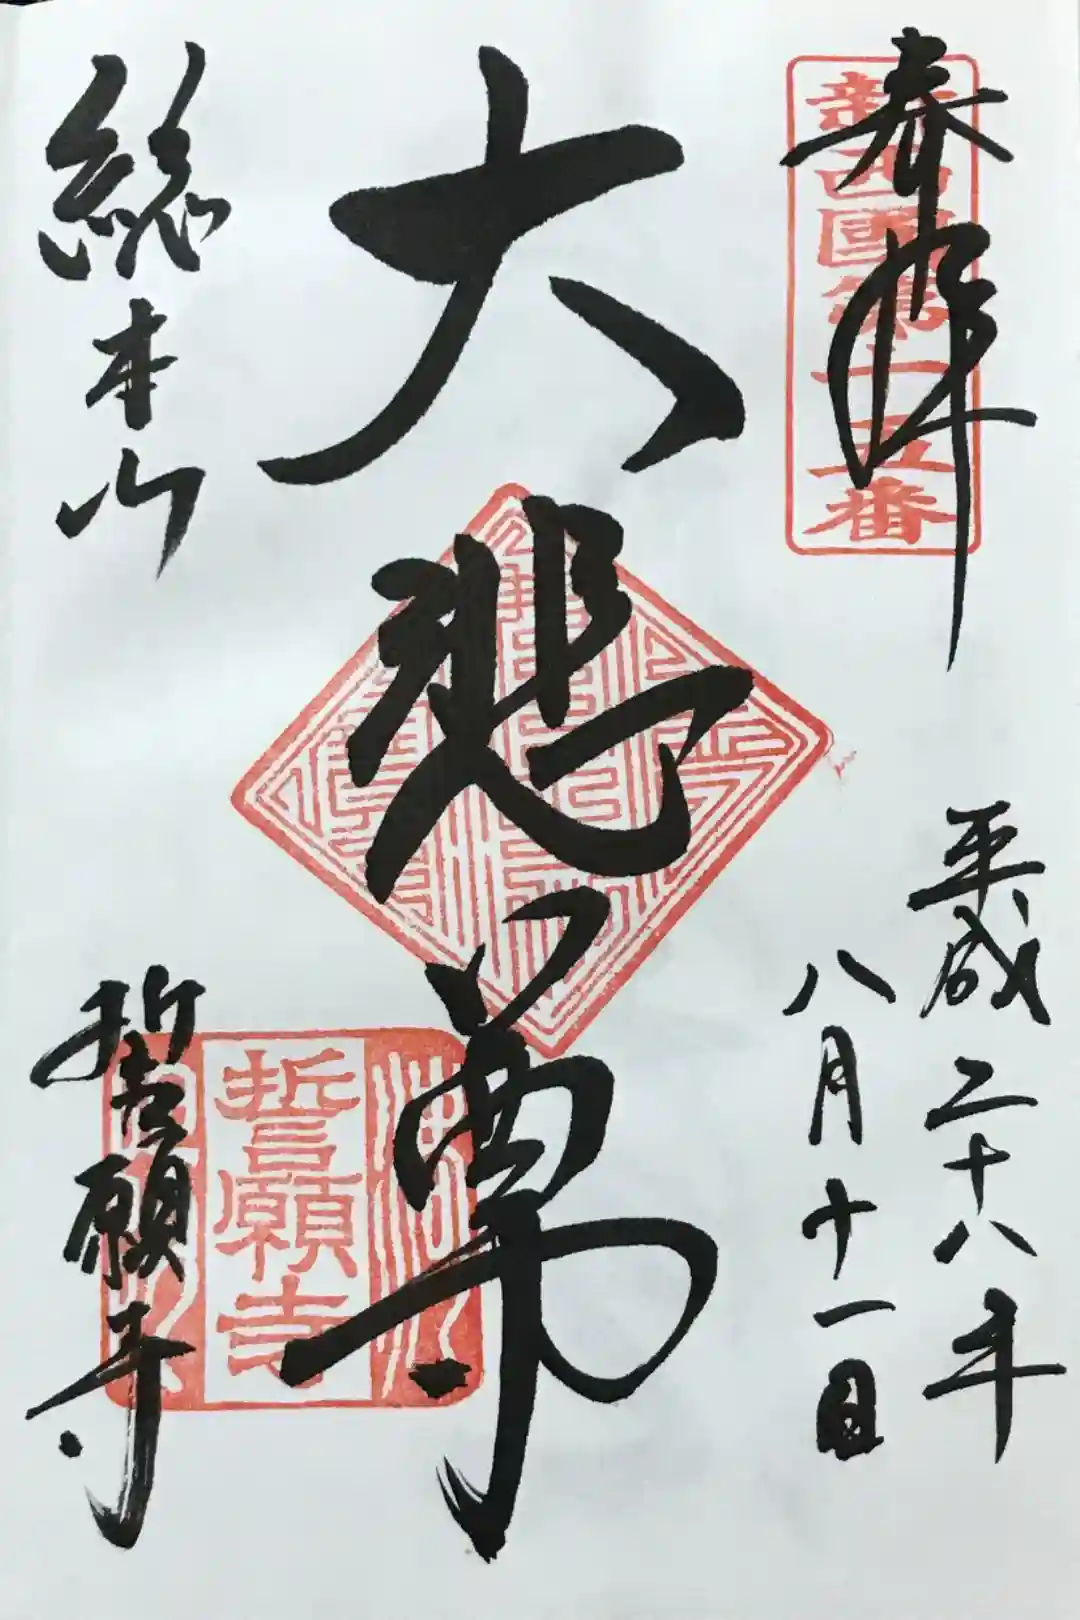 奉拝
新西國第十五番
平成二十八年
八月十一日
大悲尊
総本山
誓願寺
誓願寺